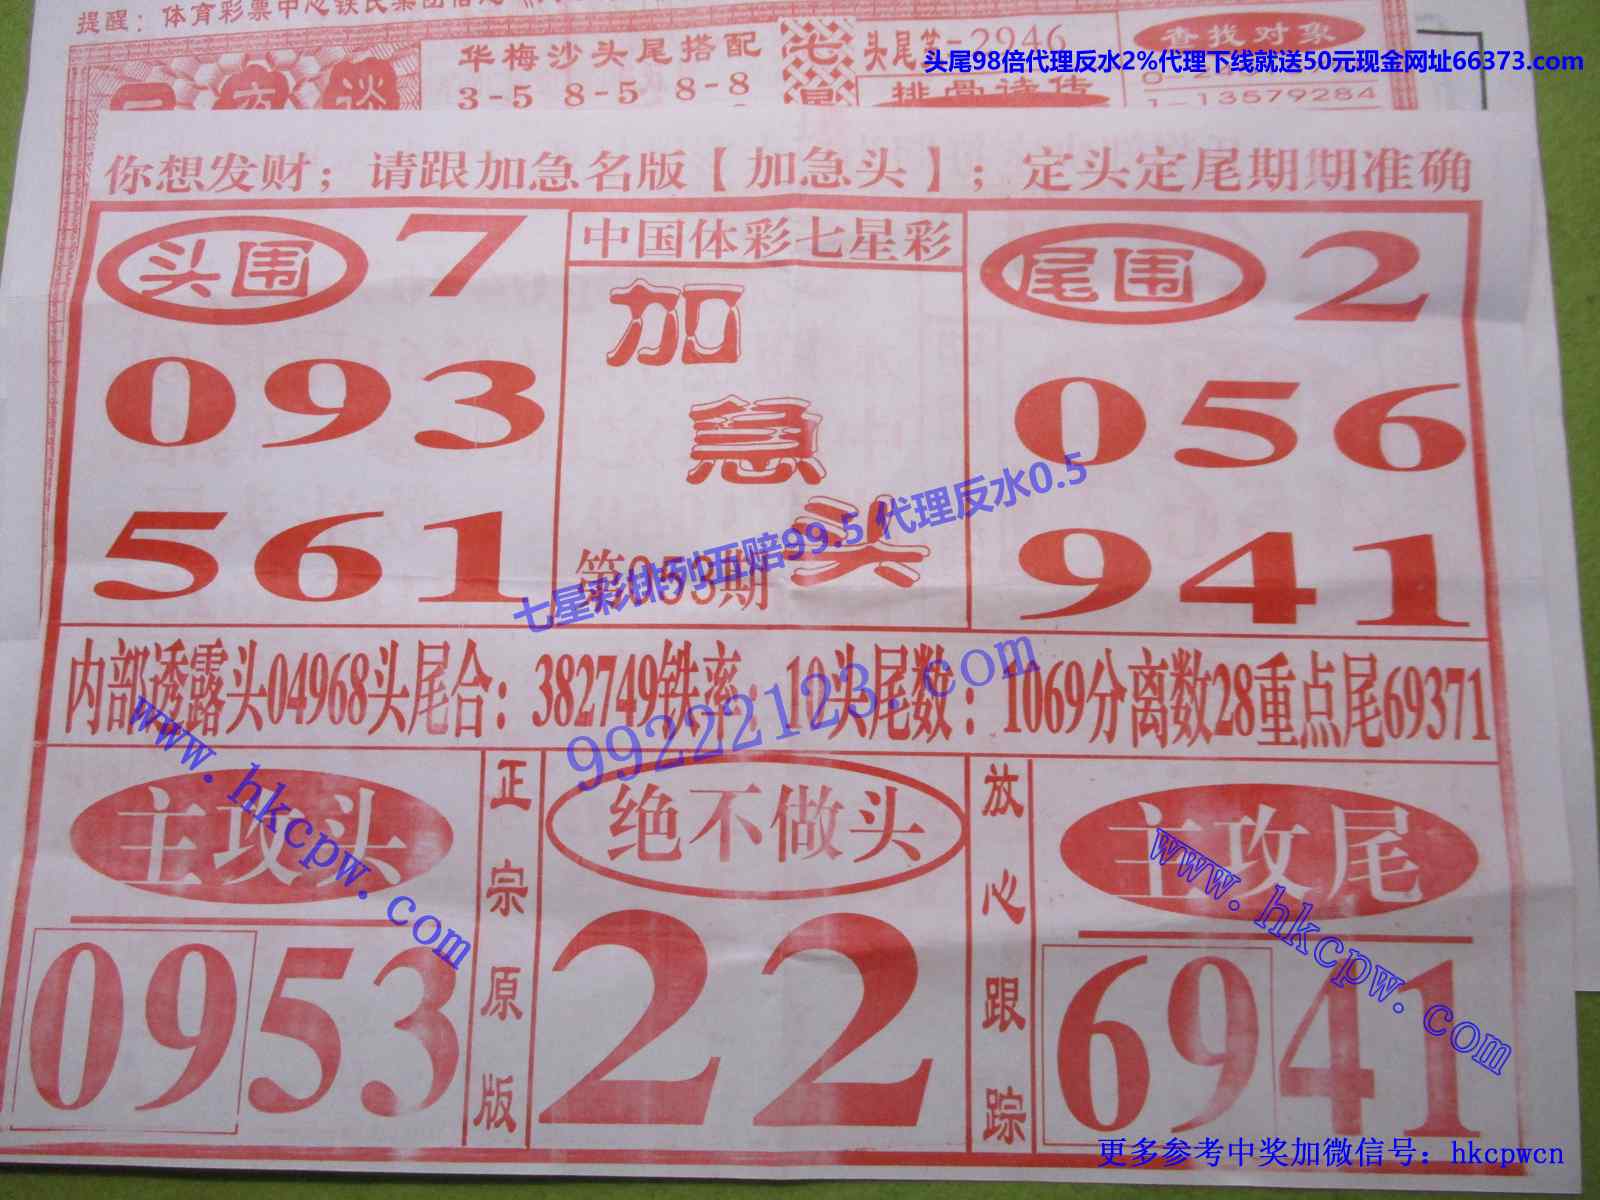 提醒：体育彩票中心铁民集团信
华梅沙头尾搭配
3-5 8-5 8-8
头尾第-2946
排骨诗传
查找对象
1-13579284
头尾98倍代理反水2%代理下线就送50元现金网址66373.com
你想发财；请跟加急名版【加急头】；定头定尾期期准确
头围 7
093
561
中国体彩七星彩
加
急
头
第053期
尾围 2
056
941
七星彩排列五赔99.5 代理反水0.5
内部透露头04968头尾合：382749铁率：10头尾数：1069分离数28重点尾69371
99222123.com
www.hkcpw.com
主攻头
0953
正宗原版
绝不做头
22
放心跟踪
主攻尾
6941
www.hkcpw.com
更多参考中奖加微信号：hkcpwcn